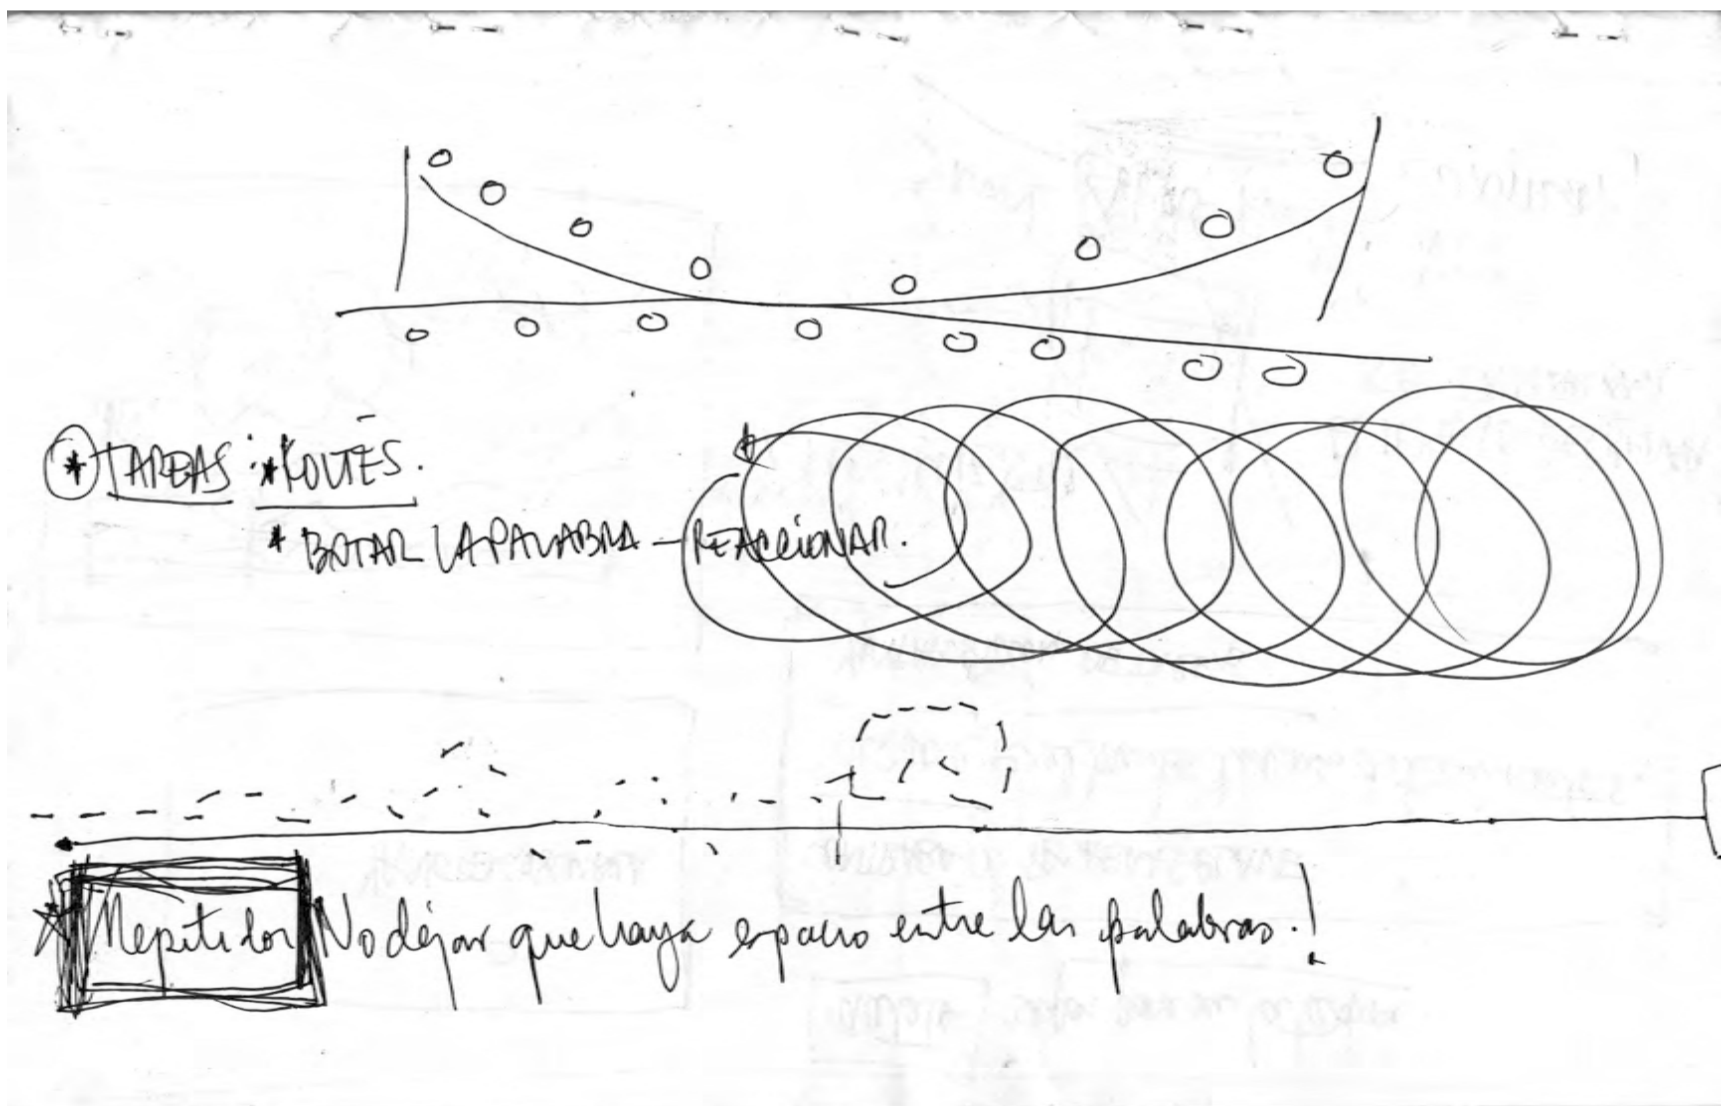 * TAREAS : * KOLTÈS.
* BOTAR LA PALABRA — REACCIONAR.
No dejar que haya espacio entre las palabras.!